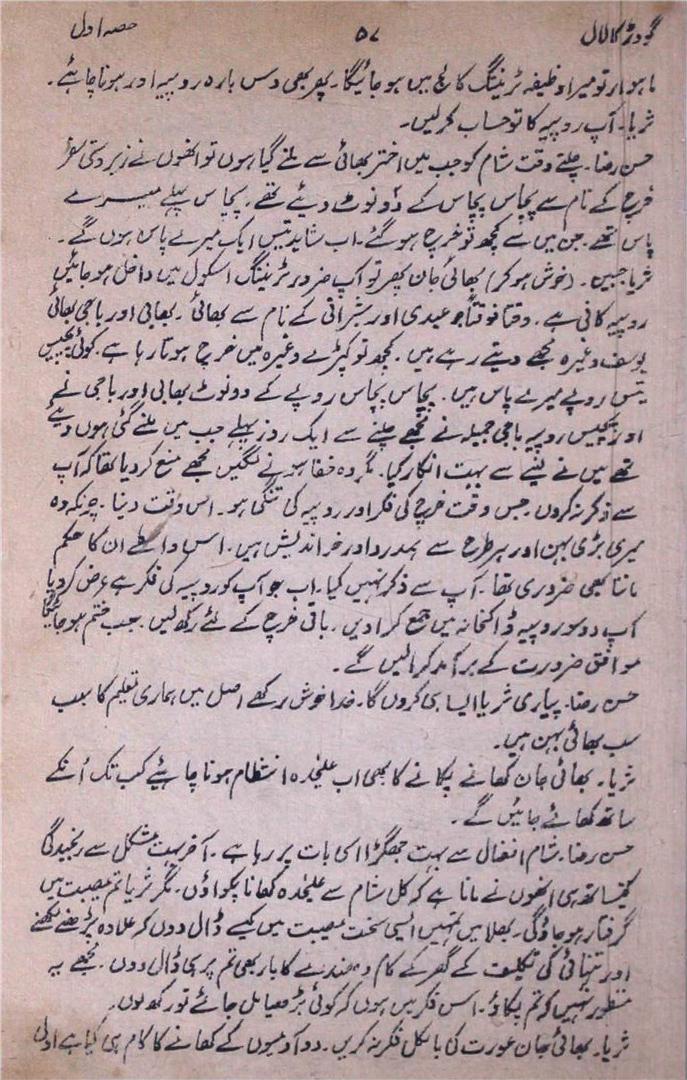 گودڑ کا لال ۵۷ حصہ اول
ماہوار تو میرا وظیفہ ٹریننگ کالج میں ہو جائیگا۔ پھر بھی دس بارہ روپیہ اور ہونا چاہئے۔
ثریا۔ آپ روپیہ کا تو حساب کر لیں۔
حسن رضا۔ چلتے وقت شام کو جب میں اختر بھائی سے ملنے گیا ہوں تو انھوں نے زبردستی سفر
خرچ کے نام سے پچاس پچاس کے دو نوٹ دیئے تھے۔ پچاس پہلے میرے
پاس تھے۔ جن میں سے کچھ تو خرچ ہو گئے۔ اب شاید تیس ایک میرے پاس ہوں گے۔
ثریا جبین۔ (خوش ہو کر) بھائی جان پھر تو آپ ضرور ٹریننگ اسکول میں داخل ہو جائیں
روپیہ کافی ہے۔ وقتاً فوقتاً جو عیدی اور شبراتی کے نام سے بھائی۔ بھابی اور باجی بھائی
یوسف وغیرہ مجھے دیتے رہے ہیں۔ کچھ تو کپڑے وغیرہ میں خرچ ہوتا رہا ہے۔ کوئی پچیس
تیس روپے میرے پاس ہیں۔ پچاس پچاس روپے کے دو نوٹ بھابی اور باجی نے
اور پچیس روپیہ باجی جمیلہ نے مجھے چلنے سے ایک روز پہلے جب میں ملنے گئی ہوں دیئے
تھے میں نے لینے سے بہت انکار کیا۔ مگر وہ خفا ہونے لگیں مجھے منع کر دیا تھا کہ آپ
سے ذکر نہ کروں۔ جس وقت خرچ کی فکر اور روپیہ کی تنگی ہو۔ اس وقت دینا۔ چونکہ وہ
میری بڑی بہن اور ہر طرح سے ہمدرد اور خیر اندیش ہیں۔ اس واسطے ان کا حکم
ماننا بھی ضروری تھا۔ آپ سے ذکر نہیں کیا۔ اب جو آپ کو روپیہ کی فکر ہے عرض کر دیا
آپ دو سو روپیہ ڈاکخانہ میں جمع کرا دیں۔ باقی خرچ کے لئے رکھ لیں۔ جب ختم ہو جائیگا
موافق ضرورت کے برآمد کرالیں گے۔
حسن رضا۔ پیاری ثریا ایسا ہی کروں گا۔ خدا خوش رکھے اصل میں ہماری تعلیم کا سبب
سب بھائی بہن ہیں۔
ثریا۔ بھائی جان کھانے پکانے کا بھی اب علیٰحدہ انتظام ہونا چاہئے کب تک اُنکے
ساتھ کھائے جائیں گے۔
حسن رضا۔ شام افعال سے بہت جھگڑا اسی بات پر رہا ہے۔ آخر بہت مشکل سے رنجیدگی
کیساتھ ہی انھوں نے مانا ہے کہ کل شام سے علیٰحدہ کھانا پکواؤں۔ مگر ثریا تم مصیبت میں
گرفتار ہو جاؤگی۔ بھلا میں تمہیں ایسی سخت مصیبت میں کیسے ڈال دوں کہ علاوہ پڑھنے لکھنے
اور تنہائی کی تکلیف کے گھر کے کام دھندے کا بار بھی تم پر ہی ڈال دوں۔ مجھے یہ
منظور نہیں کہ تم پکاؤ۔ اس فکر میں ہوں کہ کوئی بڑھیا مل جائے تو رکھ لوں۔
ثریا۔ بھائی جان عورت کی بالکل فکر نہ کریں۔ دو آدمیوں کے کھانے کا کام ہی کیا ہے اول